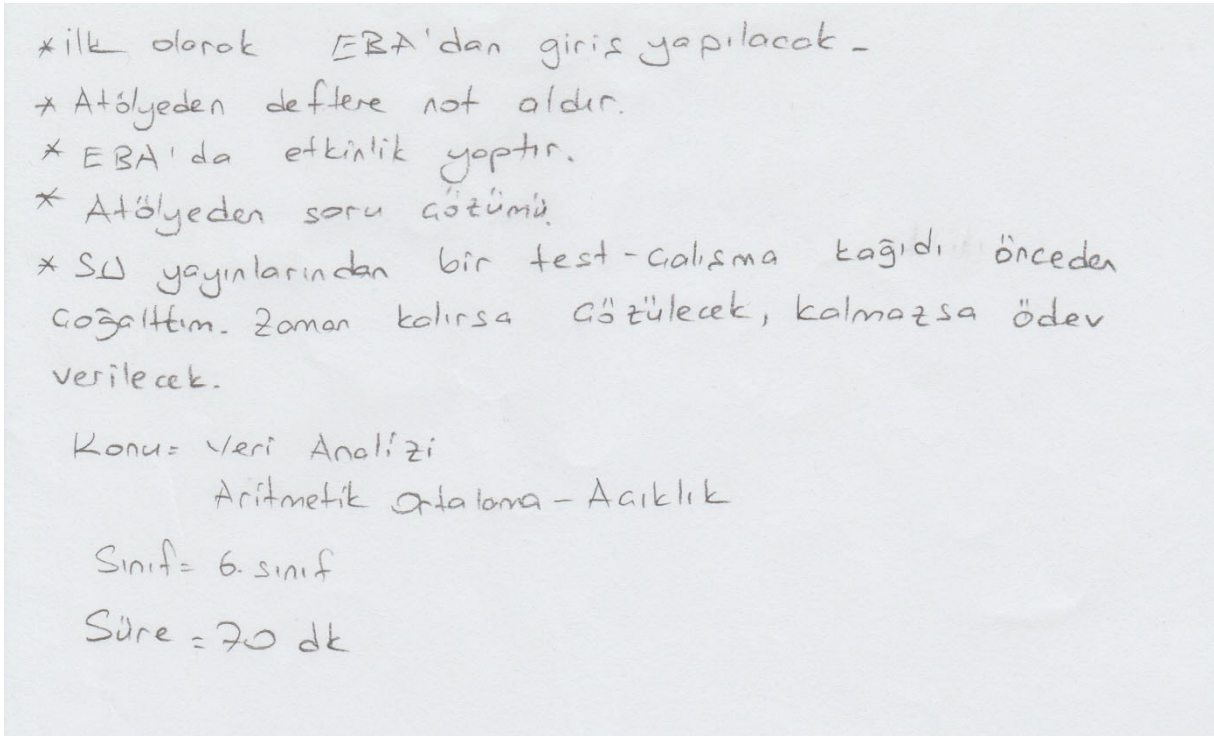 * ilk olarak EBA'dan giriş yapılacak -
* Atölyeden deftere not aldır.
* EBA'da etkinlik yaptır.
* Atölyeden soru çözümü.
* SU yayınlarından bir test - çalışma kağıdı önceden
çoğalttım. Zaman kalırsa çözülecek, kalmazsa ödev
verilecek.
Konu= Veri Analizi
Aritmetik Ortalama - Açıklık
Sınıf= 6. sınıf
Süre = 70 dk